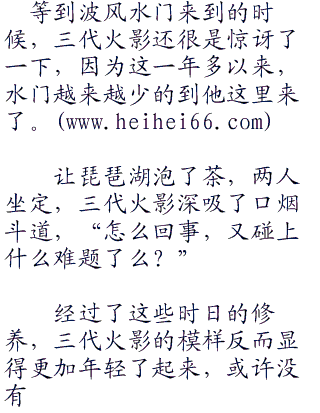 等到波风水门来到的时
候，三代火影还很是惊讶了
一下，因为这一年多以来，
水门越来越少的到他这里来
了。(www.heihei66.com)
让琵琶湖泡了茶，两人
坐定，三代火影深吸了口烟
斗道，“怎么回事，又碰上
什么难题了么？”
经过了这些时日的修
养，三代火影的模样反而显
得更加年轻了起来，或许没
有